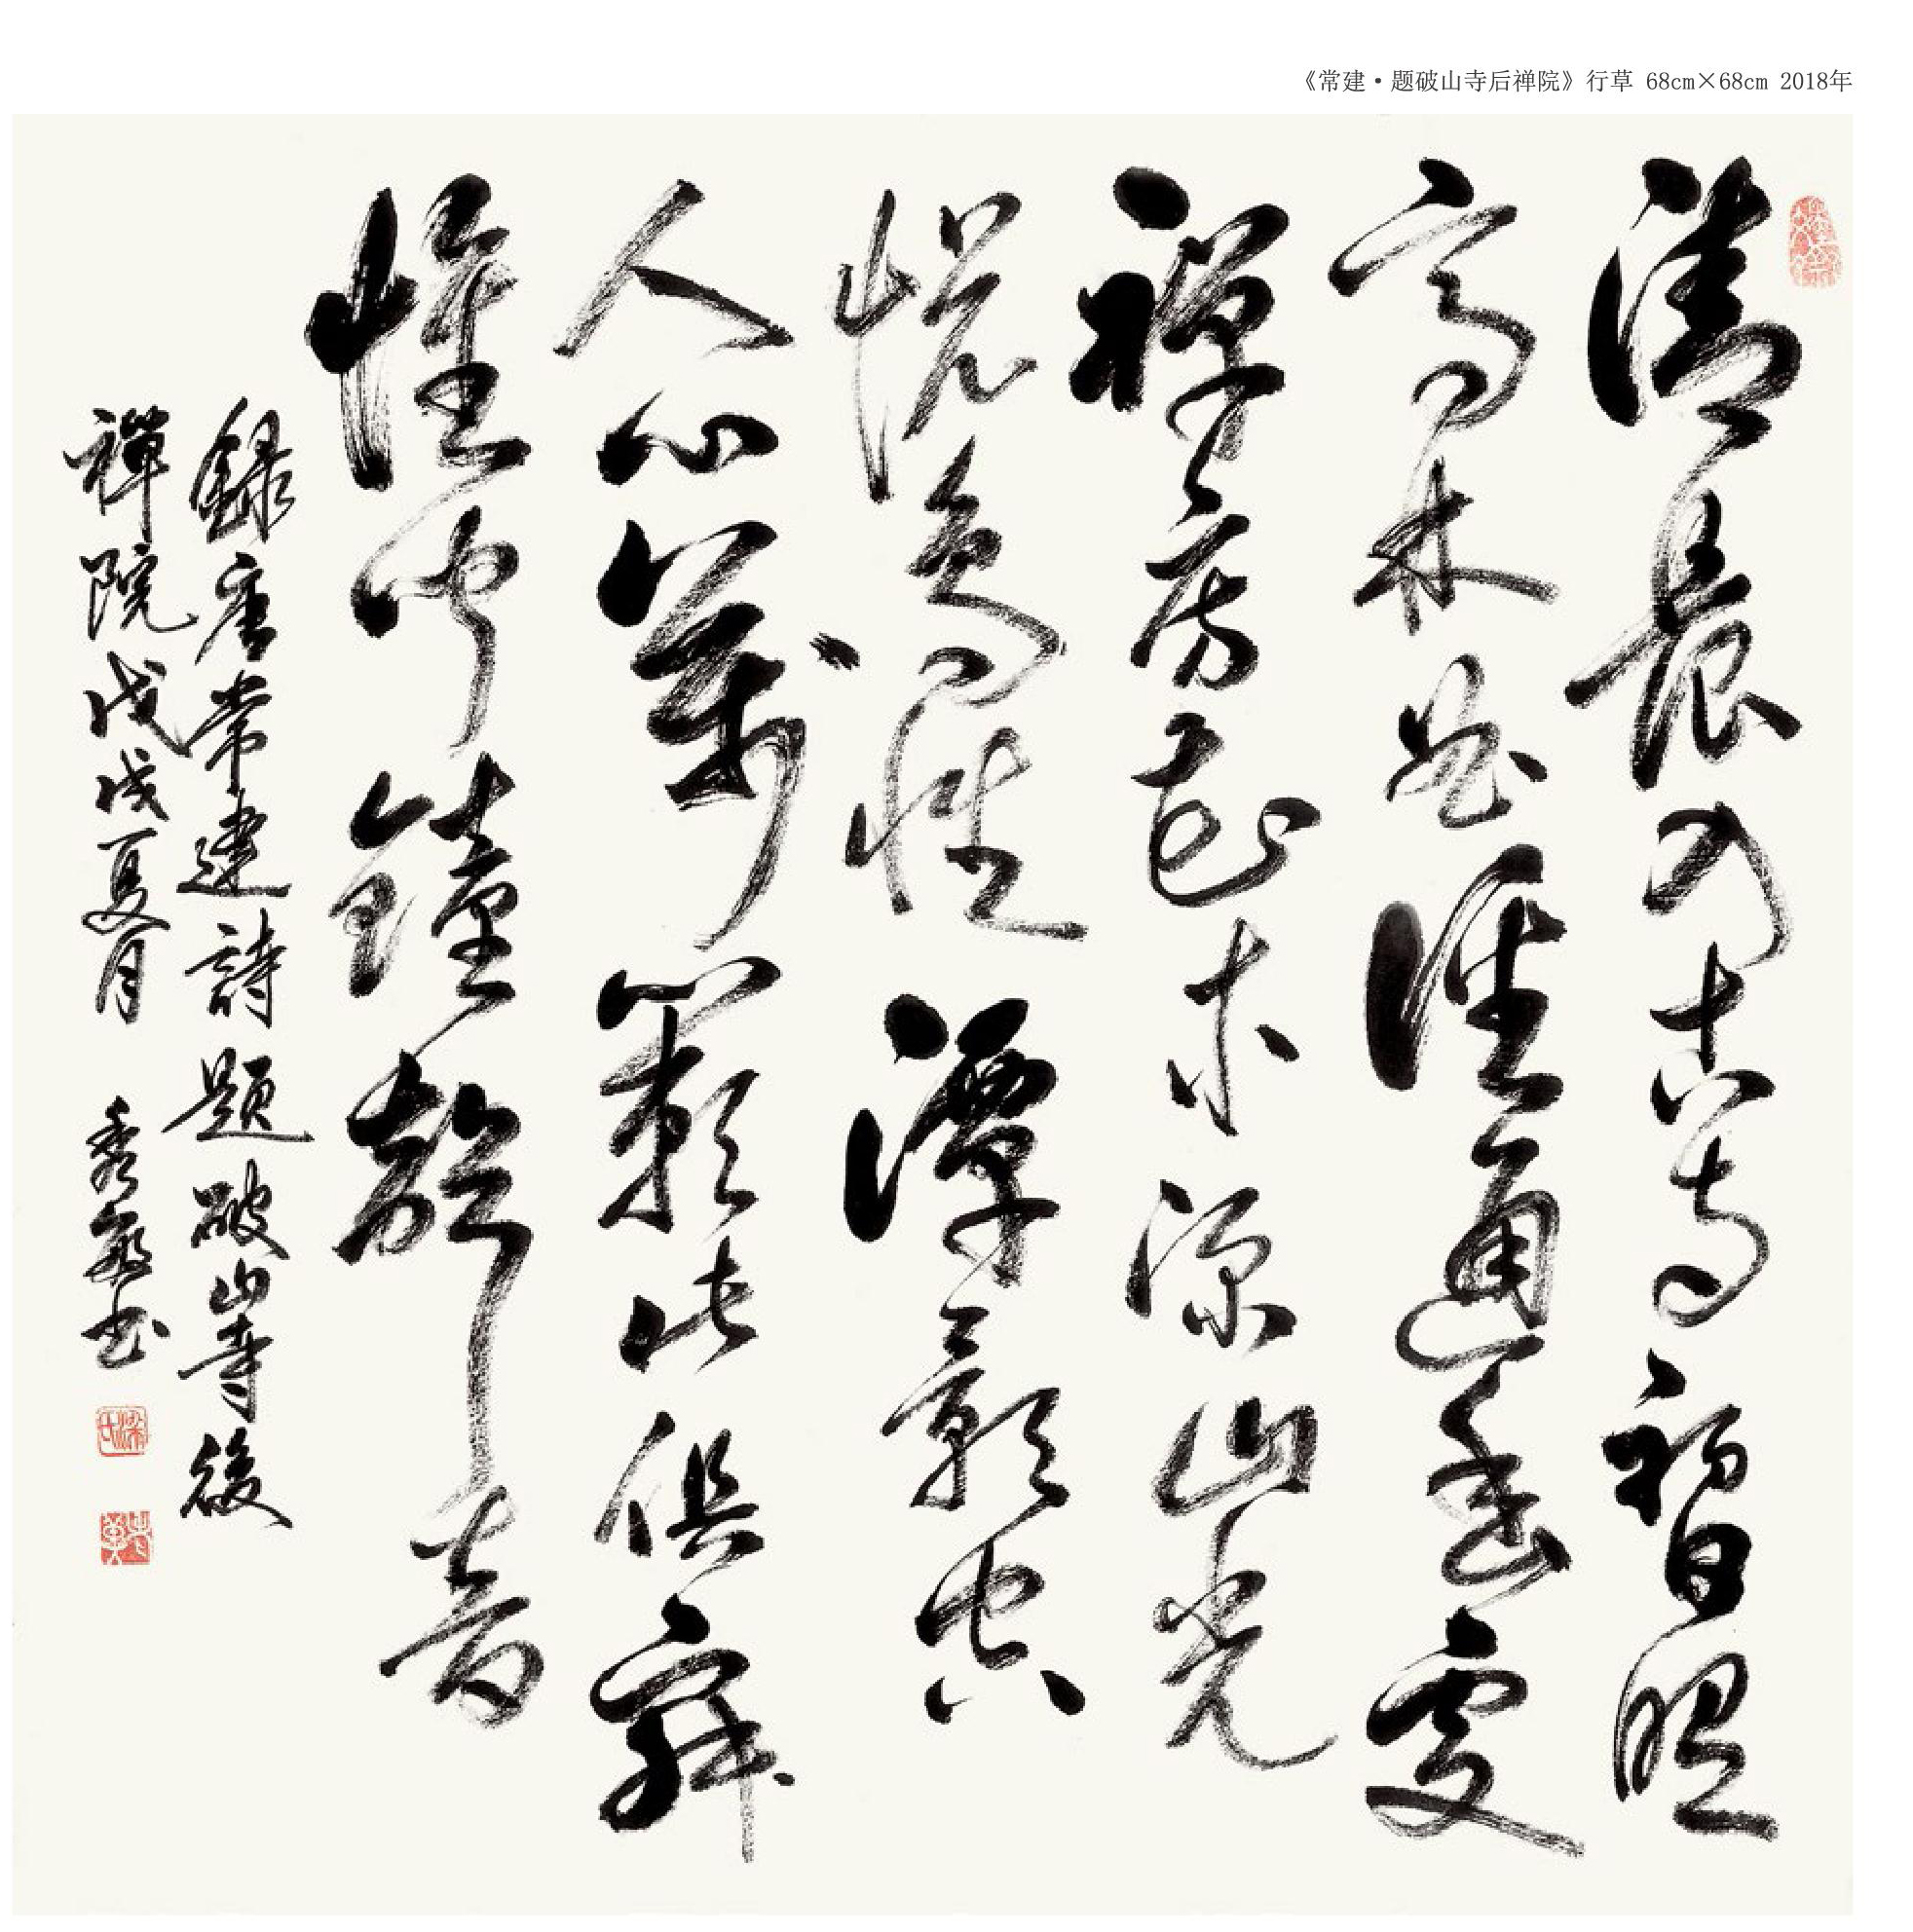 《常建·题破山寺后禅院》行草 68cm×68cm 2018年
清晨入古寺初日照
高林曲徑通幽處
禪房花木深山光
悦鳥性潭影空
人心萬籟此俱寂
惟聞鐘磬音
録唐常建詩題破山寺後
禪院戊戌夏月 秀敏书
梁氏